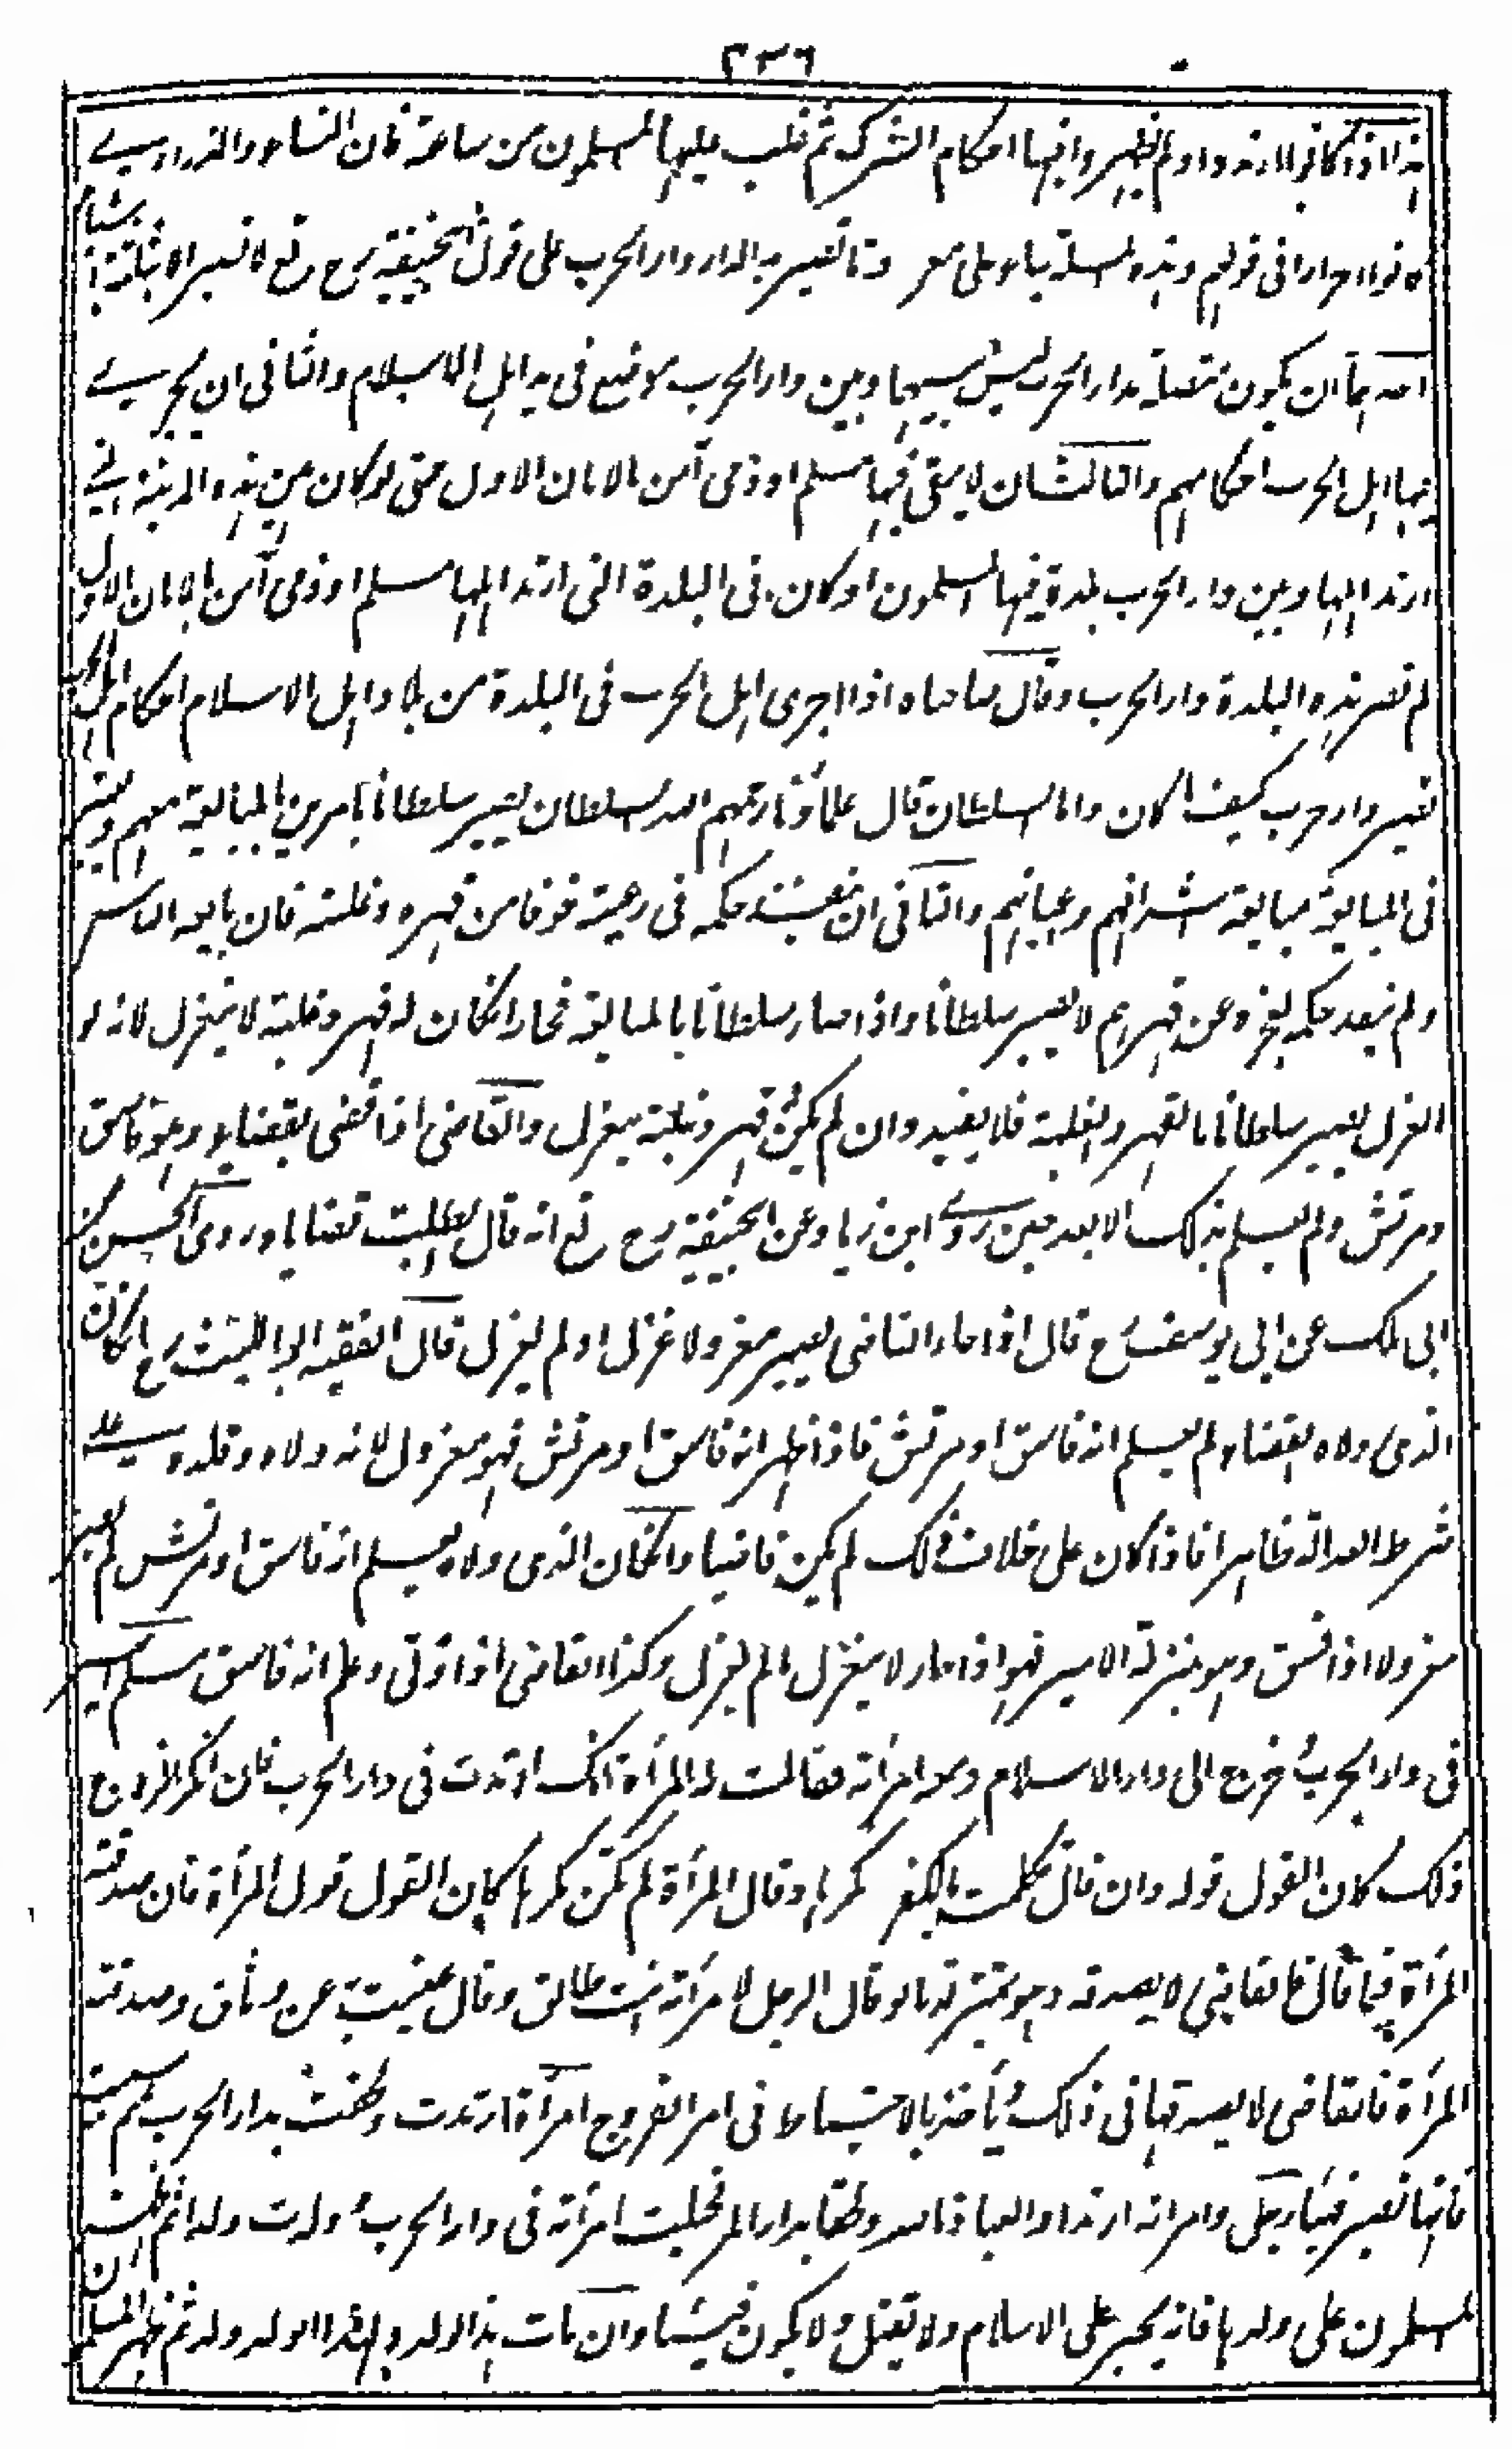 ٣٣٦
هذا اذا كانوا اولم يظهروا فيها احكام الشرك ثم غلب عليها المسلمون من ساعته فان النساء والذراري
احرارا فى قولهم وهذه المسئلة بناء على معرفة ما تصير به الدار دار الحرب على قول ابيحنيفة رح رضع لا تصير الا بثلثة اشياء
احدها ان يكون متصلة بدار الحرب ليس بينها وبين دار الحرب موضع فى يد اهل الاسلام والثانى ان يجرى
فيها اهل الحرب احكامهم والثالث ان لا يبقى فيها مسلم او ذمى آمن بالامان الاول حتى لو كان بين هذه المدينة التى
ارتد اهلها وبين دار الحرب بلدة فيها المسلمون او كان فى البلدة التى ارتد اهلها مسلم او ذمى آمن بالامان الاول
لم تصر هذه البلدة دار الحرب وقال صاحباه اذا اجرى اهل الحرب فى البلدة من بلاد اهل الاسلام احكام اهل الحرب
تصير دار حرب كيف ما كان واما السلطان قال علماؤنا رحمهم الله السلطان يصير سلطانا بامرين بالمبايعة معهم ويعتبر
فى المبايعة مبايعة اشرافهم واعيانهم والثانى ان ينفذ حكمه فى رعيته خوفا من قهره وغلبته فان بايعه الناس
ولم ينفذ حكمه لعجزه عن قهرهم لا يصير سلطانا واذا صار سلطانا بالمبايعة فجار ان كان له قهر وغلبة لا ينعزل لانه لو
انعزل يصير سلطانا بالقهر والغلبة فلا يفيد وان لم يكن له قهر وغلبة ينعزل والقاضى اذا قضى بقضاء وهو فاسق
ومرتش ولم يعلم بذلك الا بعد حين روى ابن زياد عن ابيحنيفة رح رضع انه قال بطلت قضاياه وروى الحسن بن
ابى ملك عن ابى يوسف رح قال اذا جار القاضى يصير معزولا عزل او لم يعزل قال الفقيه ابو الليث رح ان كان
الذى ولاه القضاء لم يعلم انه فاسق او مرتش فاذا ظهر انه فاسق او مرتش فهو معزول لانه ولاه وقلده على
شرط العدالة ظاهرا فاذا كان على خلاف ذلك لم يكن قاضيا وان كان الذى ولاه يعلم انه فاسق او مرتش لم يصر
معزولا اذا فسق وهو بمنزلة الامير فهو اذا جار لا ينعزل ما لم يعزل وكذا القاضى اذا ولى وعلم انه فاسق مسلم اسير
فى دار الحرب خرج الى دار الاسلام ومعه امرأته فقالت له المرأة انك ارتددت فى دار الحرب فان انكر الزوج
ذلك كان القول قوله وان قال تكلمت بالكفر مكرها وقال المرأة لم تكن مكرها كان القول قول المرأة فان صدقته
المرأة فيما قال فالقاضى لا يصدقه وهو بمنزلة ما لو قال الرجل لامرأته انت طالق وقال عنيت عن وثاق وصدقته
المرأة فالقاضى لا يصدقها فى ذلك يأخذ بالاحتياط فى امر الفروج امرأة ارتدت ولحقت بدار الحرب ثم سبيت
فانها تصير فيئا رجل وامرأته ارتدا والعياذ بالله ولحقا بدار الحرب فحبلت امرأته فى دار الحرب وولدت ولدا ثم ظهر
المسلمون على ولدها فانه يجبر على الاسلام ولا يقتل ولا يكون فيئا وان مات هذا الولد ولهذا الولد ولد ثم ظهر المسلمون